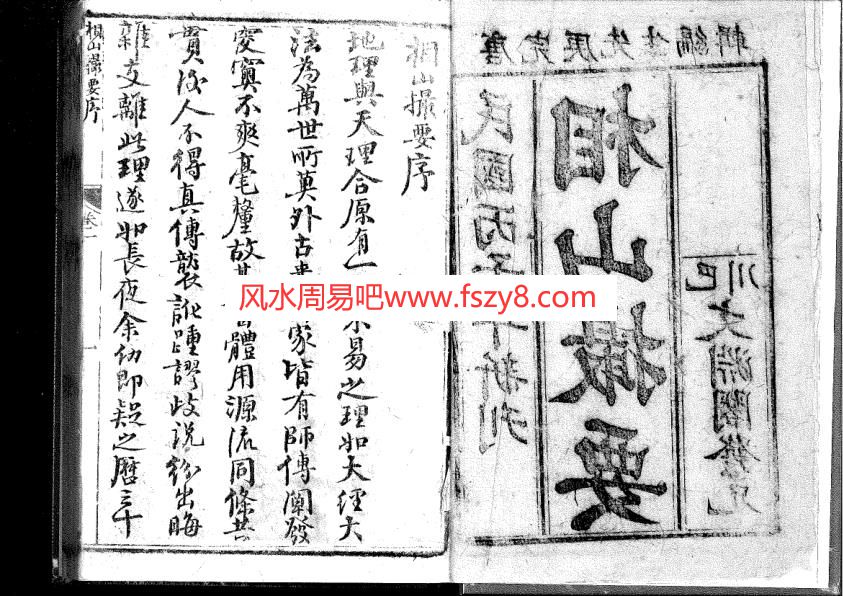 先生編輯
川巴
文淵閣發兌
相山撮要
民國丙子年新刊
相山撮要序
地理與天理合原有一不易之理如大經大
法為萬世所莫外古家皆有師傳闡發
變實不爽毫釐故體用源流同條共
貫後人不得真傳襲訛踵謬歧說紛出晦
雜支離此理遂如長夜余幼即疑之曆三十
相山撮要序
卷一
风水周易吧www.fszy8.com